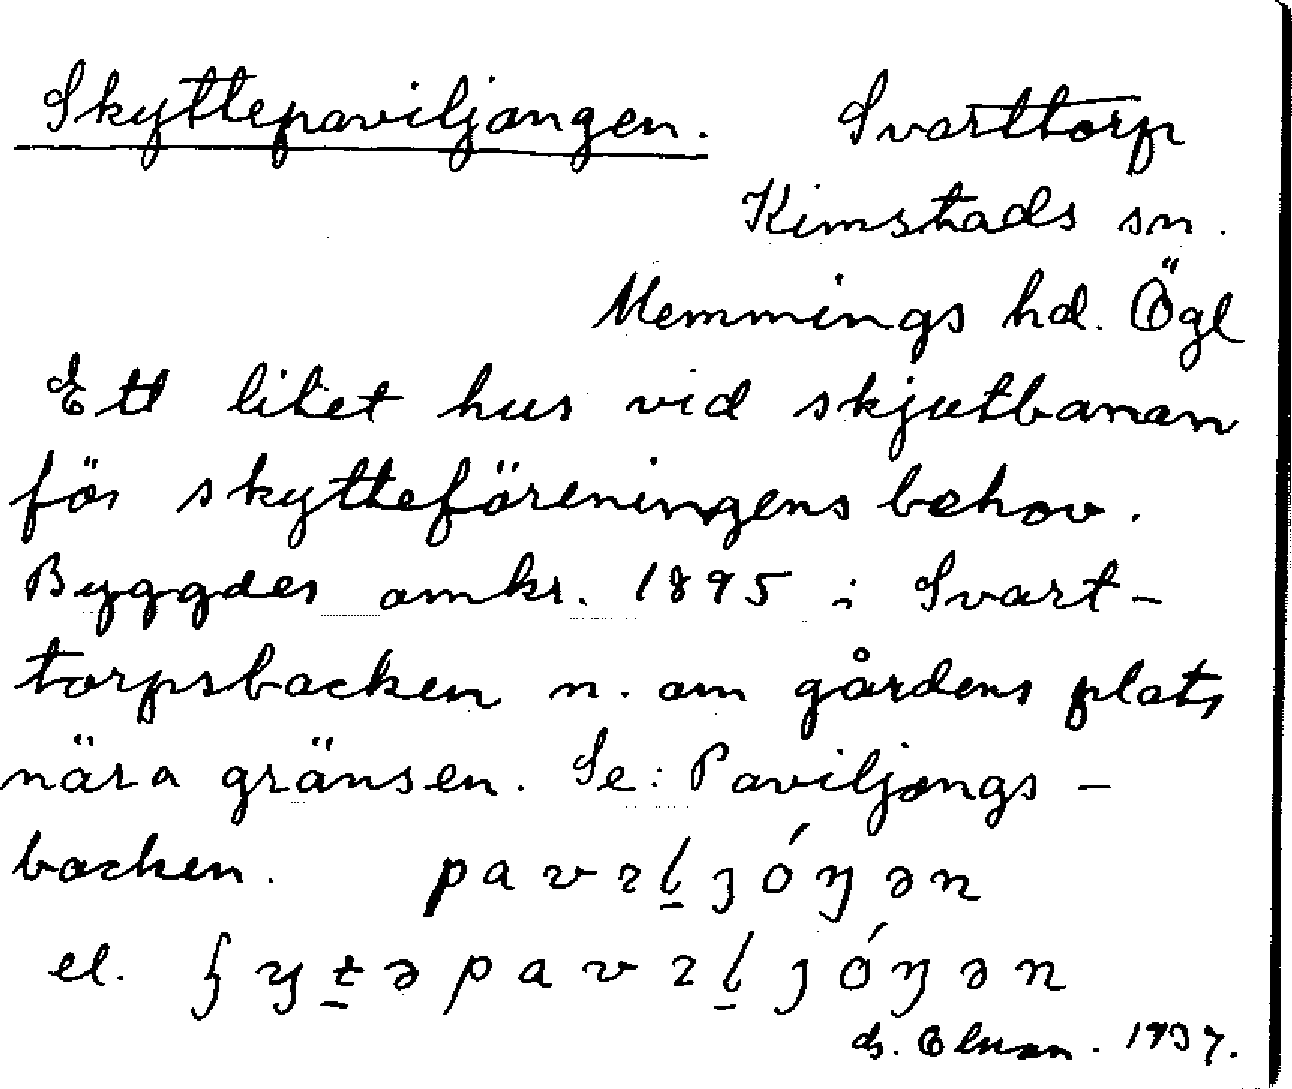 Skyttepaviljongen. Svarttorp
Kimstads sn.
Memmings hd. Ögl
Ett litet hus vid skjutbanan
för skytteföreningens behov.
Byggdes omkr. 1895 i Svart-
torpsbacken n. om gårdens plats
nära gränsen. Se: Paviljongs-
backen. pavɪḻȷóŋən
el. ʃyṯəpavɪḻȷóŋən
1937.